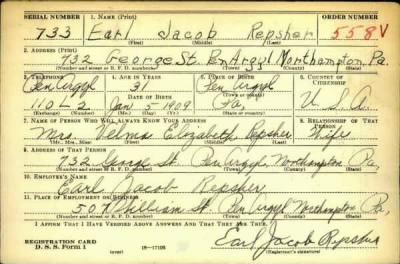 SERIAL NUMBER 1. NAME (Print) ORDER NUMBER
733 Earl Jacob Repsher 558V
(First) (Middle) (Last)
2. ADDRESS (Print)
732 George St. Pen Argyl Northampton Pa.
(Number and street or R. F. D. number) (Town) (County) (State)
3. TELEPHONE 4. AGE IN YEARS 5. PLACE OF BIRTH 6. COUNTRY OF CITIZENSHIP
Pen Argyl 31 Pen Argyl
DATE OF BIRTH
110L2 Jan 5 1909 Pa. U.S.A.
7. NAME OF PERSON WHO WILL ALWAYS KNOW YOUR ADDRESS 8. RELATIONSHIP OF THAT PERSON
Mrs. Velma Elizabeth Repsher Wife
(Mr., Mrs., Miss) (First) (Middle) (Last)
9. ADDRESS OF THAT PERSON
732 George St. Pen Argyl Northampton Pa.
(Number and street or R. F. D. number) (Town) (County) (State)
10. EMPLOYER'S NAME
Earl Jacob Repsher
11. PLACE OF EMPLOYMENT OR BUSINESS
507 William St. Pen Argyl Northampton Pa.
(Number and street or R. F. D. number) (Town) (County) (State)
I AFFIRM THAT I HAVE VERIFIED ABOVE ANSWERS AND THAT THEY ARE TRUE.
REGISTRATION CARD
D. S. S. Form 1 (over) 16—17105 Earl Jacob Repsher
(Registrant's signature)